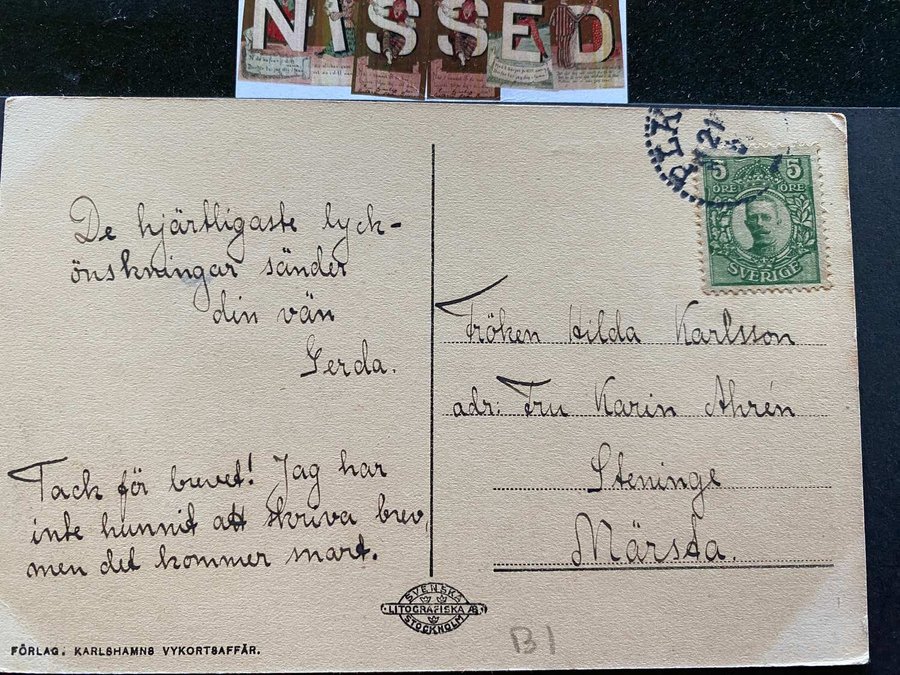 NISSED
De hjärtligaste lyck-
önskningar sänder
din vän
Gerda.
Tack för brevet! Jag har
inte hunnit att skriva brev,
men det kommer snart.
FÖRLAG. KARLSHAMNS VYKORTSAFFÄR.
SVENSKA
LITOGRAFISKA AB
STOCKHOLM
PLK
21
5 5
ÖRE ÖRE
SVERIGE
Fröken Hilda Karlsson
adr: Fru Karin Ahrén
Steninge
Märsta.
B1